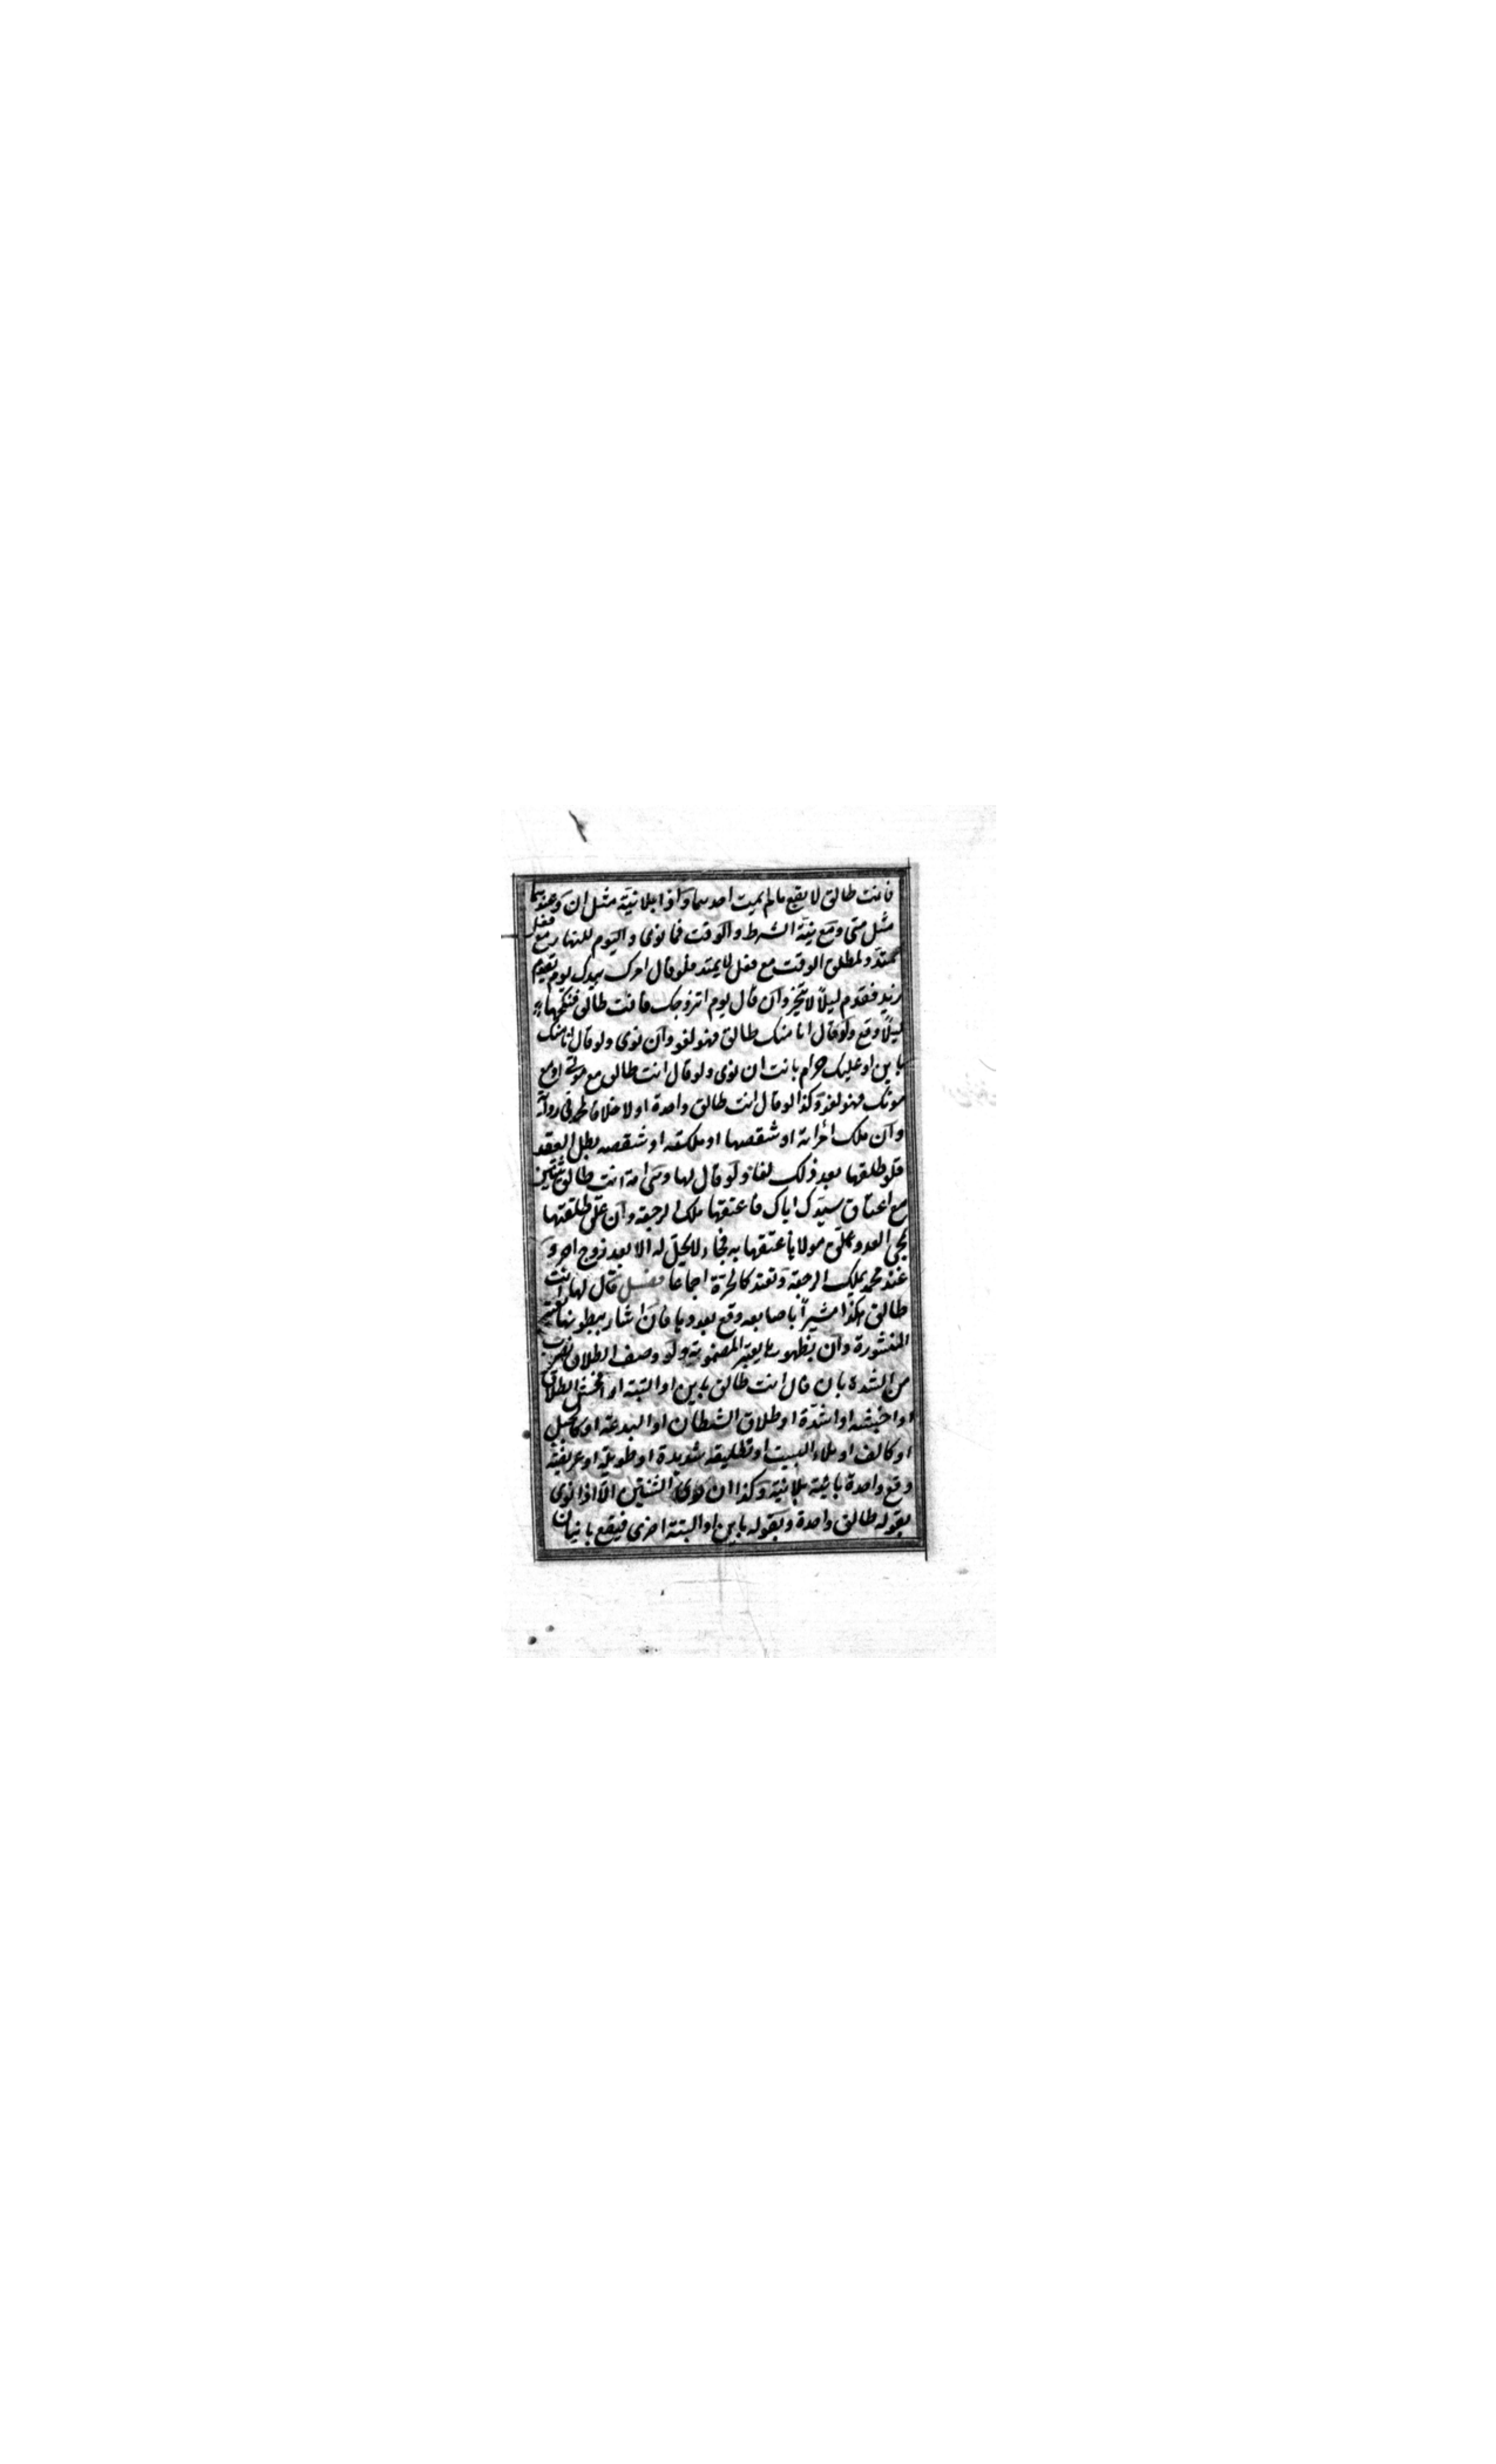 فانت طالق لا يقع مالم يمت احدهما واذا بلا نية مثل ان وعندهما
مثل متى ومع نية الشرط والوقت فما نوى واليوم للنهار مع فعل
ممتد ولمطلق الوقت مع فعل لا يمتد فلو قال امرك بيدك يوم يقدم
زيد فقدم ليلاً لا تتخير وان قال يوم اتزوجك فانت طالق فنكحها
ليلاً وقع ولو قال انا منك طالق فهو لغو وان نوى ولو قال انا منك
باين او عليك حرام بانت ان نوى ولو قال انت طالق مع موتى او مع
موتك فهو لغو وكذا لو قال انت طالق واحدة اولا خلافا لمحمد فى رواية
وان ملك امرأته او شقصها او ملكته او شقصه بطل العقد
فلو طلقها بعد ذلك لغا ولو قال لها وهى امة انت طالق ثنتين
مع اعتاق سيدك اياك فاعتقها ملك الرجعة وان علق طلقتها
بمجئ الغد وعلق مولاها عتقها به فجاء لا تحل له الا بعد زوج اخر و
عند محمد يملك الرجعة وتعتد كالحرة اجماعا فصل قال لها انت
طالق هكذا مشيراً باصابعه وقع بعددها فان اشار ببطونها تعتبر
المنشورة وان بظهورها يعتبر المضمومة ولو وصف الطلاق بضرب
من الشدة بان قال انت طالق باين او البتة او افحش الطلاق
او اخبثه او اشده او طلاق الشيطان او البدعة او كالجبل
او كالف او ملاء البيت او تطليقة شديدة او طويلة او عريضة
وقع واحدة بائنة بلا نية وكذا ان نوى الثنتين الا اذا نوى
بقوله طالق واحدة وبقوله باين او البتة اخرى فيقع بائنتان